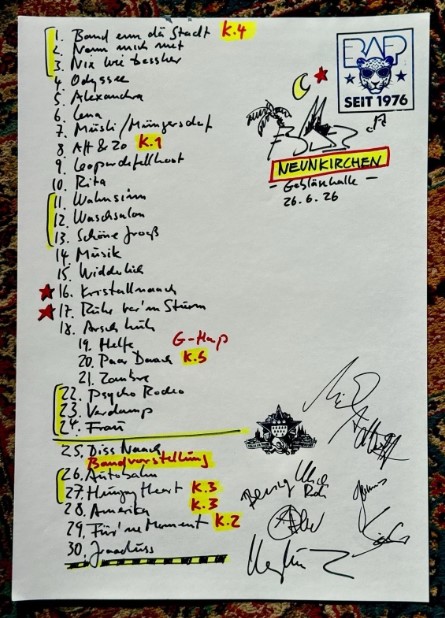 1. Band enn dä Stadt K.4
2. Nemm mich met
3. Nix wie bessher
4. Odyssee
5. Alexandra
6. Lena
7. Müsli/Müngersdorf
8. Aff & zo K.1
9. Leopardefellhoot
10. Rita
11. Wahnsinn
12. Waschsalon
13. Schöne Jrooß
14. Musik
15. Widderlich
16. Kristallnaach
17. Ruhe vor'm Sturm
18. Arsch huh
19. Helfe G-Harp
20. Paar Daach K.5
21. Zombie
22. Psycho Rodeo
23. Verdamp
24. Frau
25. Diss Naach
Bandvorstellung
26. Autobahn
27. Hungry Heart K.3
28. Amerika K.3
29. Für 'ne Moment K.2
30. Jraaduss
BAP
SEIT 1976
NEUNKIRCHEN
- Gebläsehalle -
26.6.26